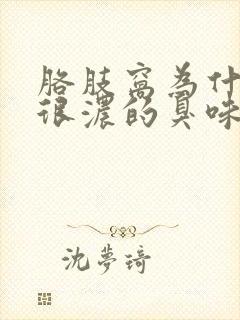 胳肢窝为什
很浓的臭味
沈梦琦